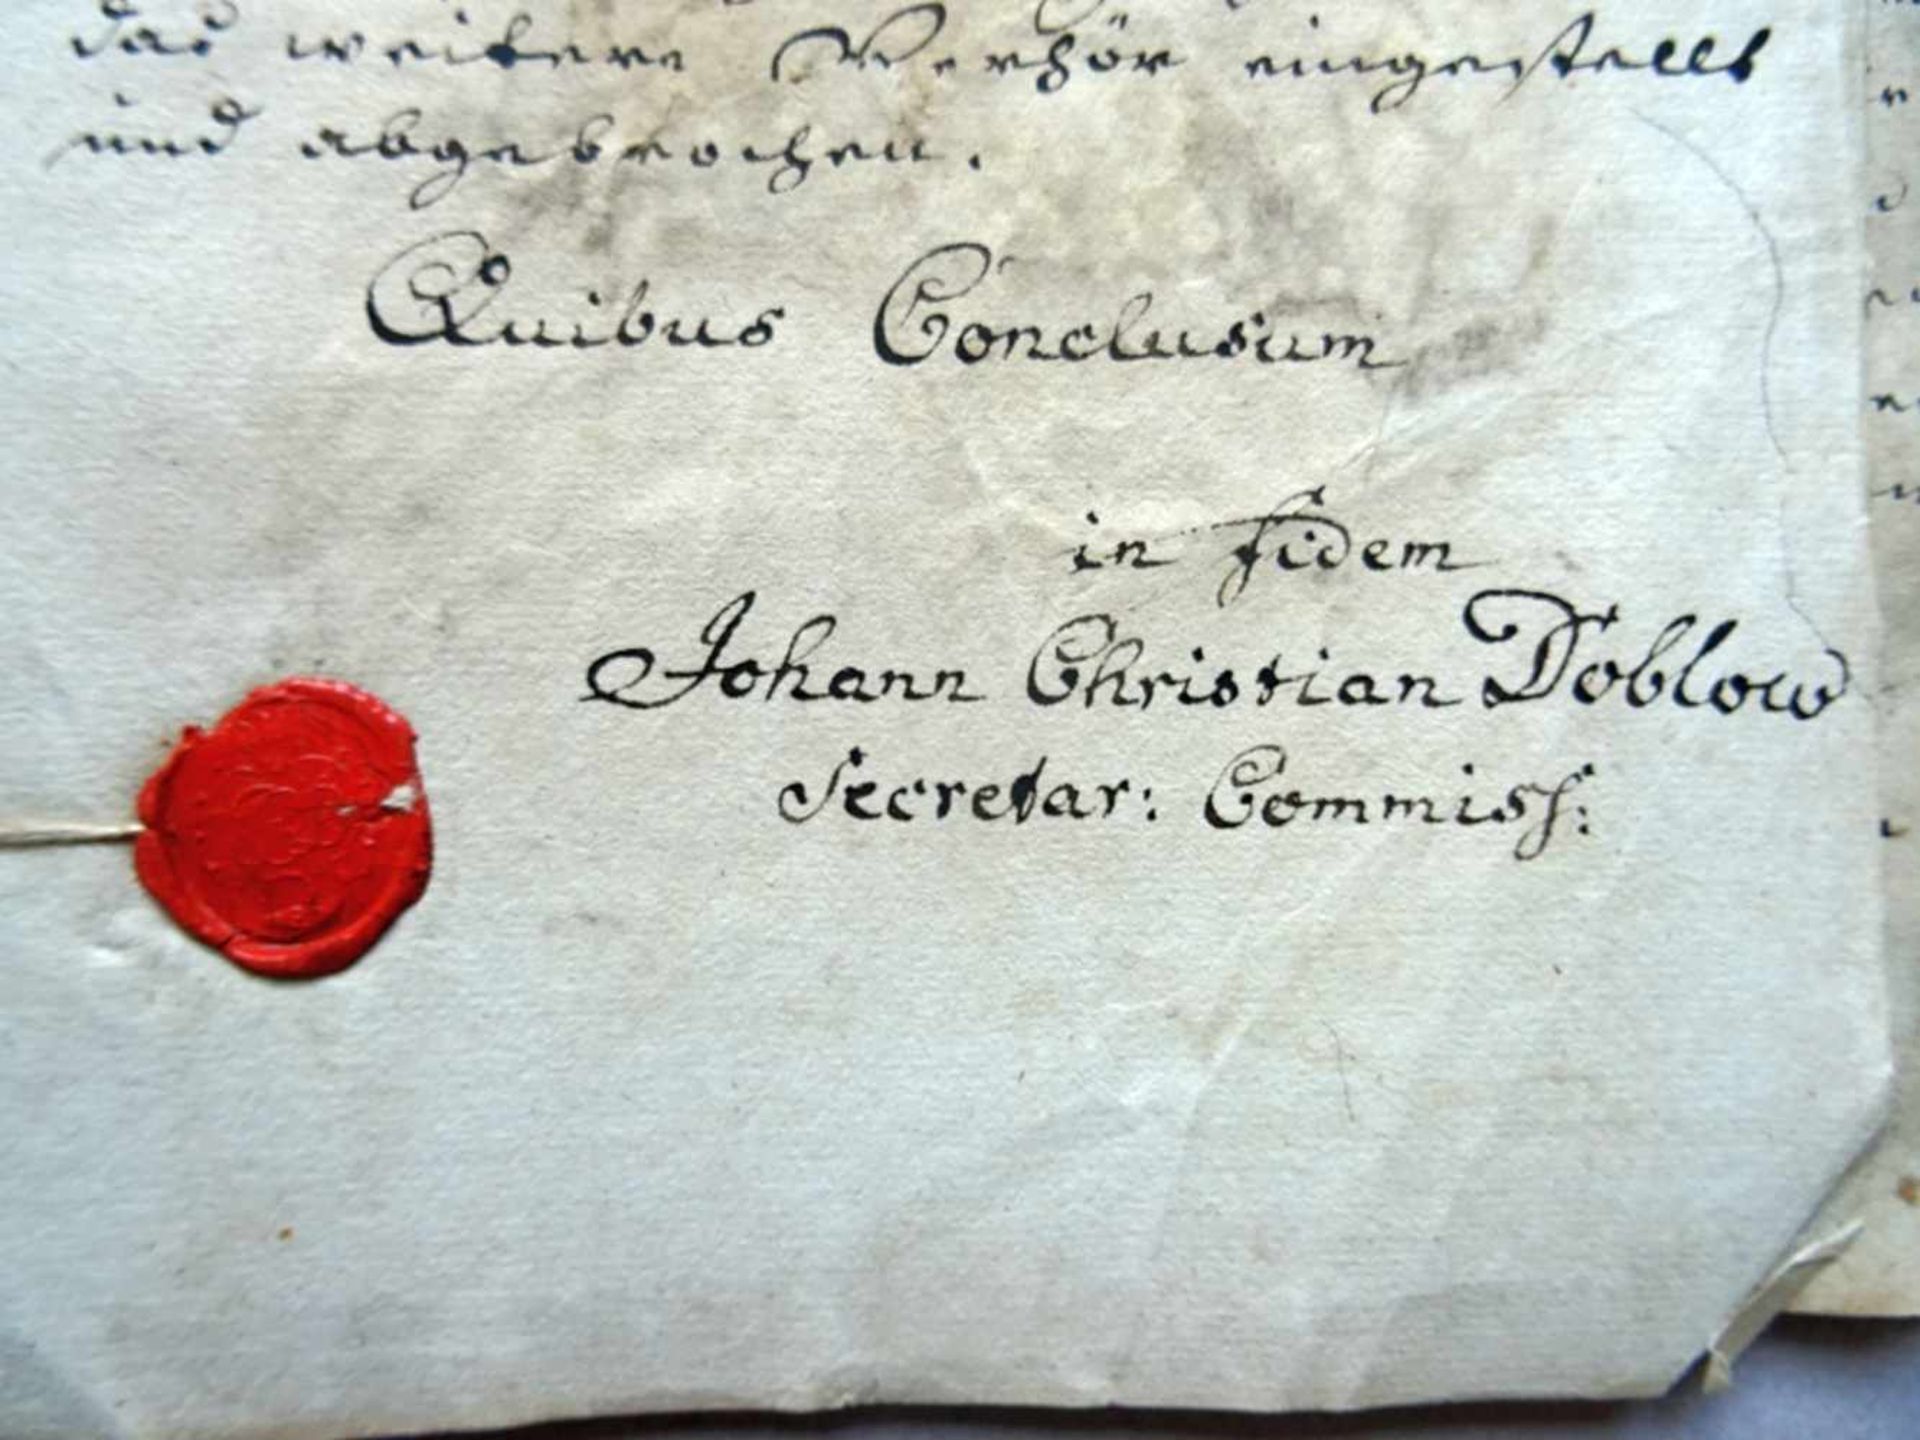 das weitere Verhör eingestellt
und abgebrochen.
Quibus Conclusum
in fidem
Johann Christian Doblow
Secretar: Commiss: